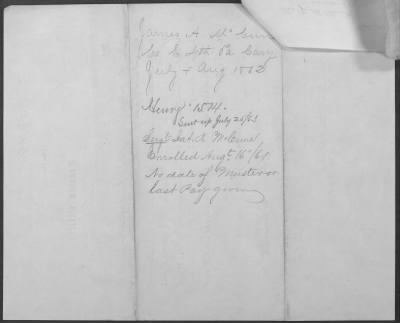 James A McGuire
Co E 4th Pa Cavy
July & Aug 1862
1574.
Sent up July 25/63
Sergt Jas. A McGuire
Enrolled Aug 16"/61
No date of Muster or
last Pay given